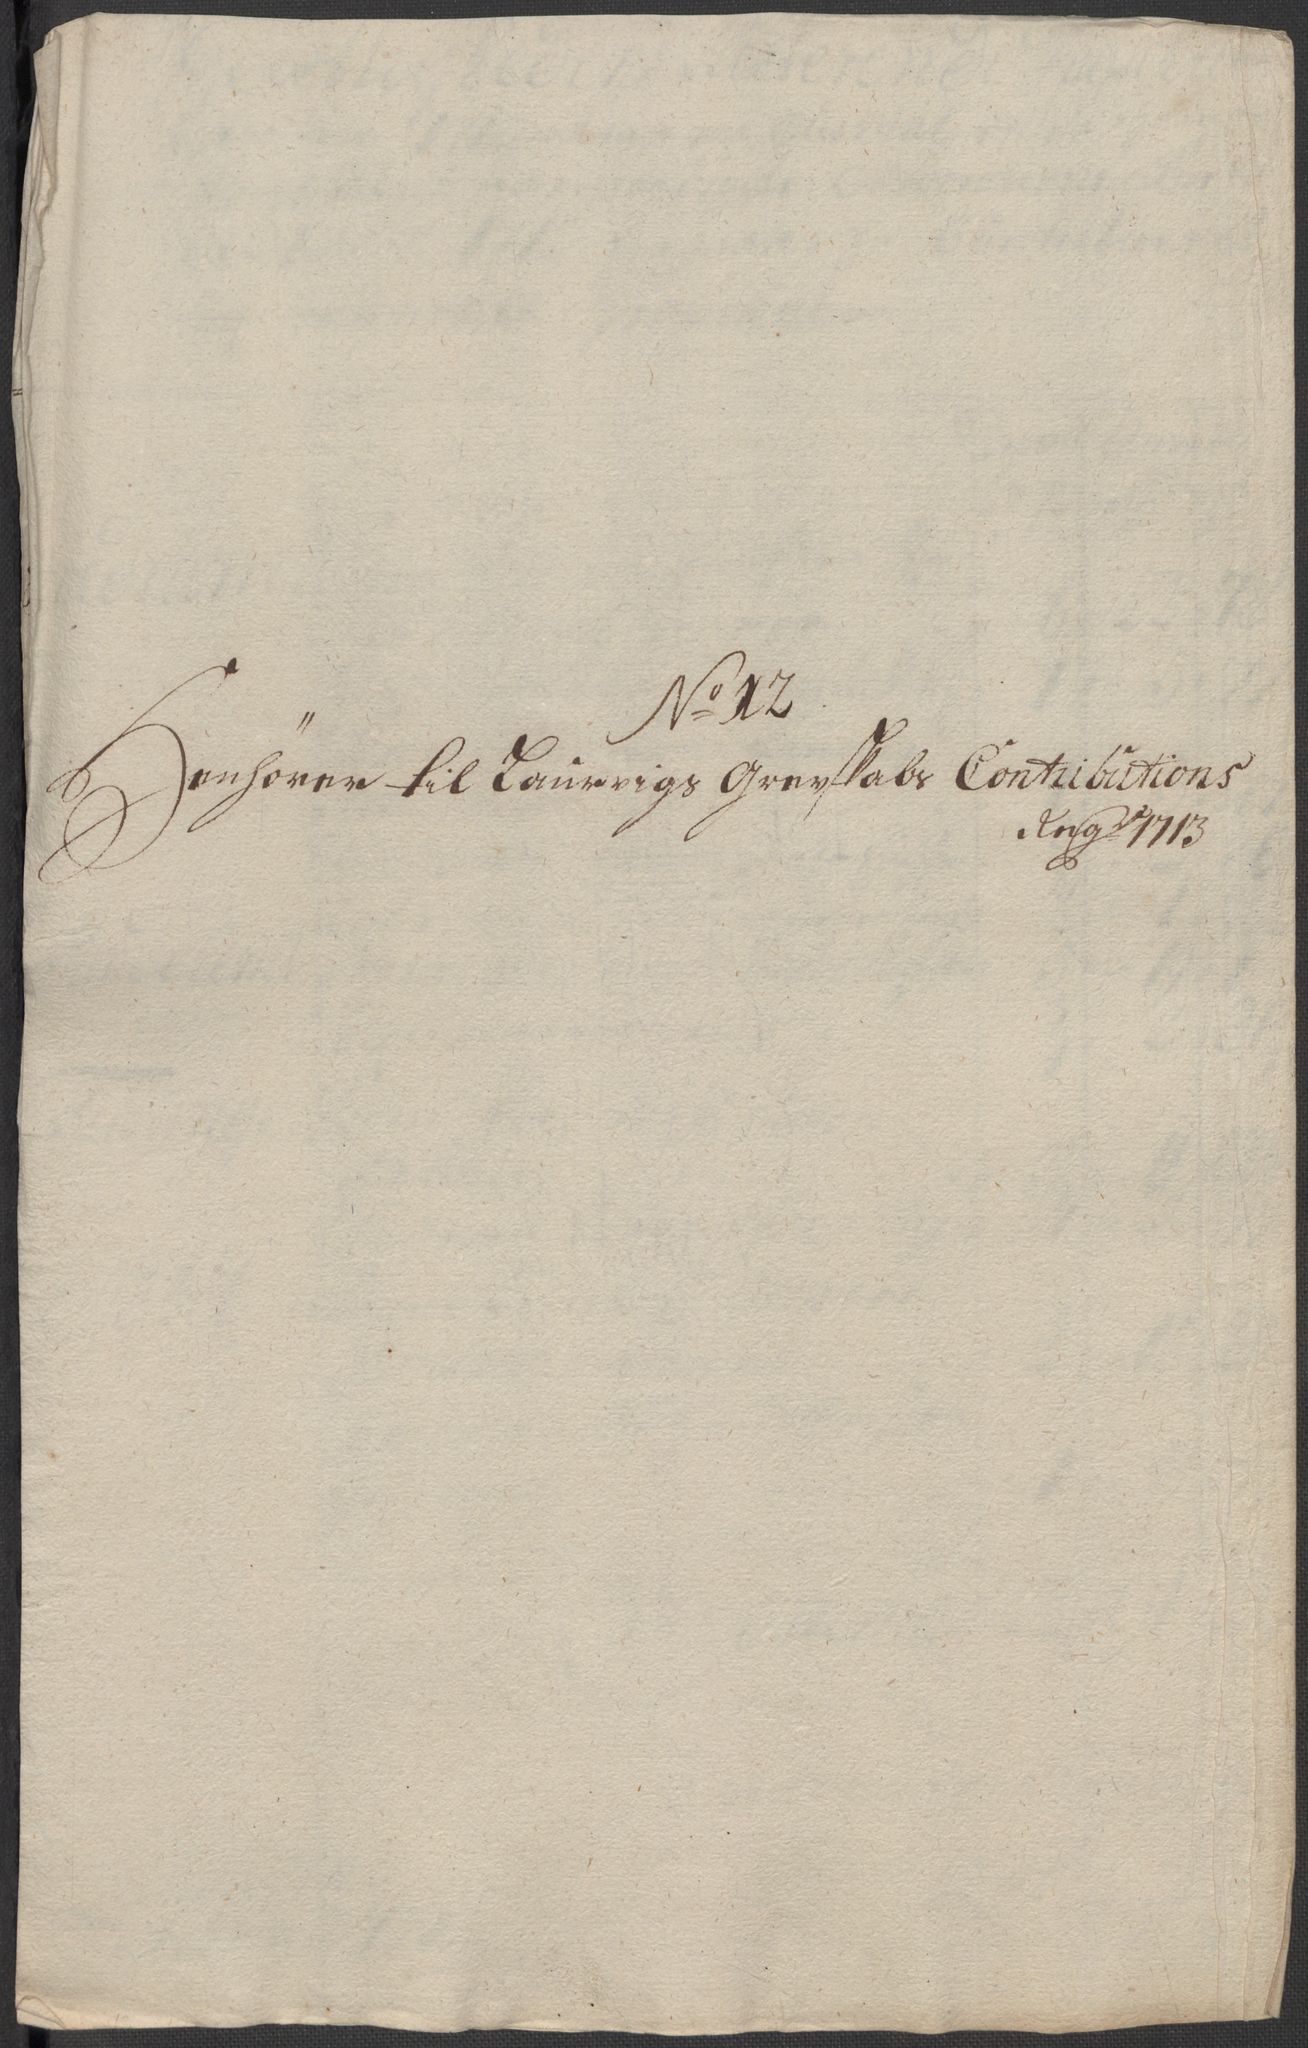 No 12
Henhörer til Laurvigs Grevskabs Contributions
Regsk 1713